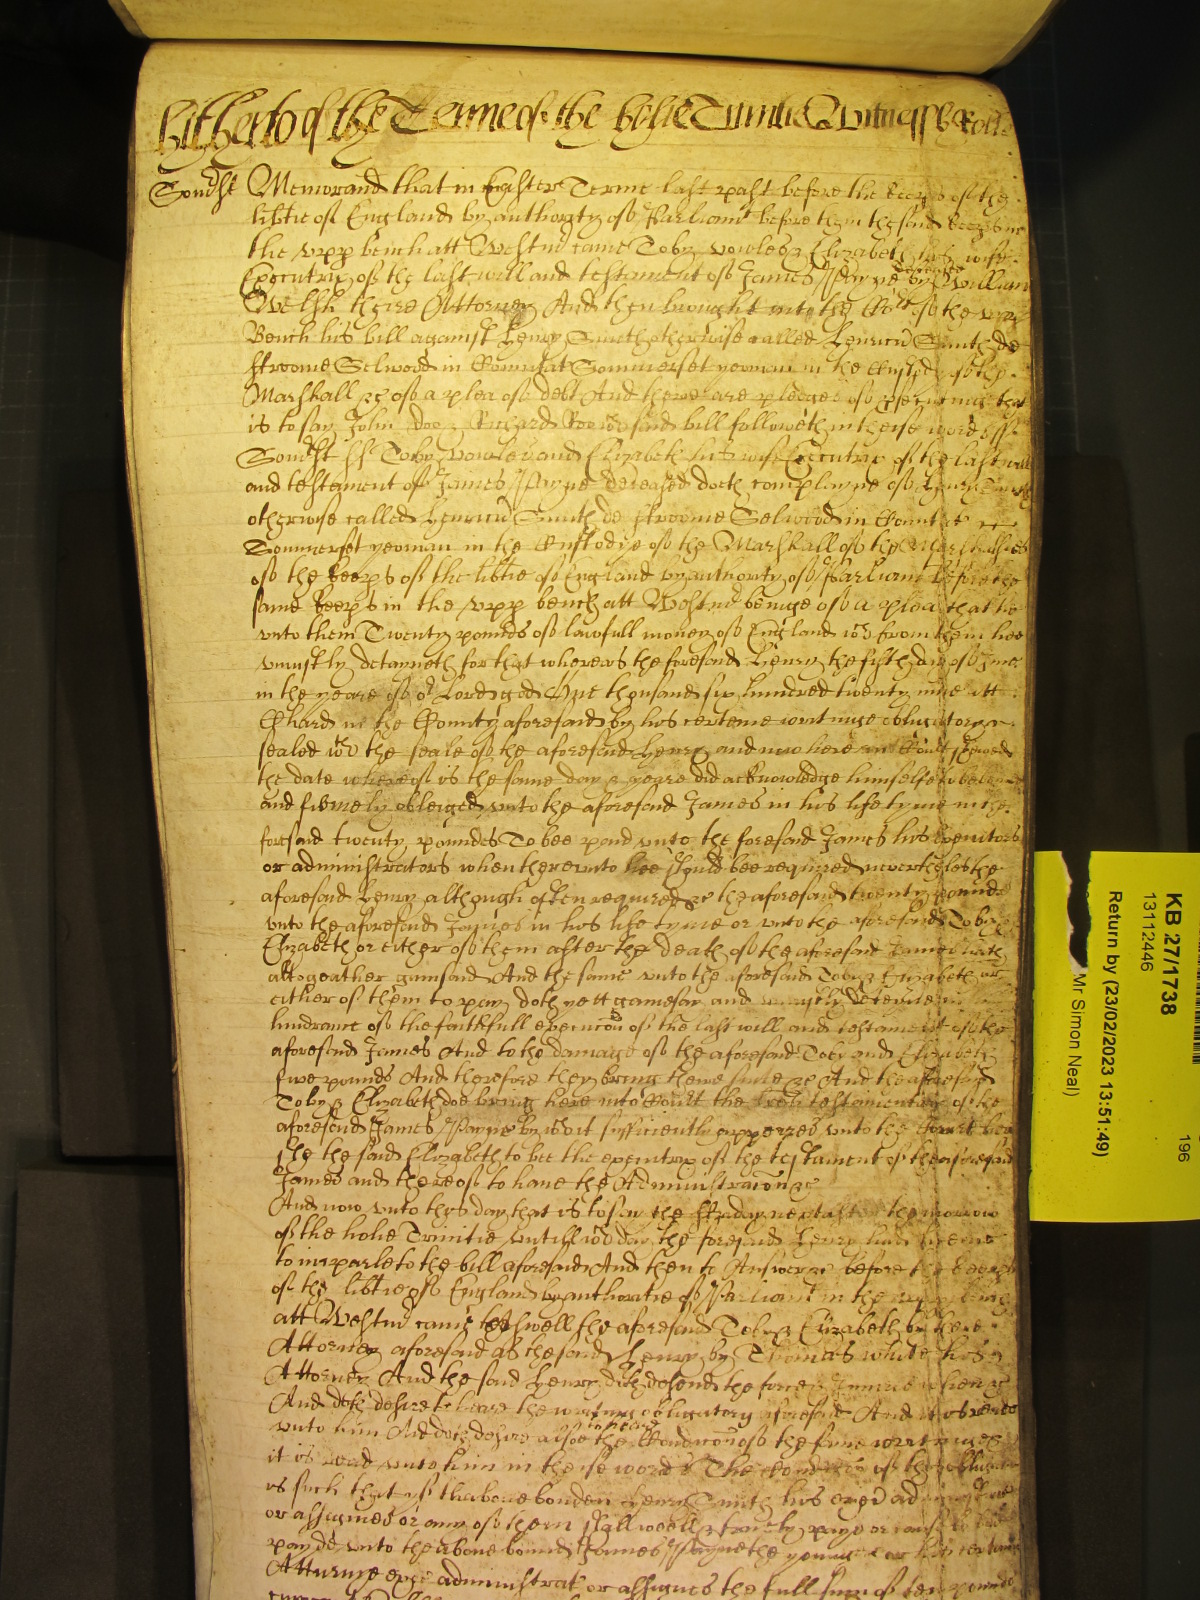 hitherto of the Terme of the holie Trinitie Witnesse Rolle
Somst Memorand that in Easter Terme last past before the keeps of the
libtie of England by authority of Parliamt before them the said keeps in
the vpp bench att Westmr came Toby vowles & Elizabeth his wife
Executrix of the last will and testament of James Payne deceased by william
Welsh theire Attorney And then brought into the Cort of the vpp
Bench his bill against Henry Smith otherwise called Henricu Smith de
ffroome Selwood in Comitat Sommerset yeoman in the Custody of the
Marshall &c of a plea of debt And there are pledges of prosecuting that
is to say John Doe & Richard Roe wch said bill followeth in theise words ss
Somst ss Toby vowles and Elizabeth his wife Executrix of the last will
and testament of James Payne deceased doth complayne of Henry Smith
otherwise called Henricu Smith de ffroome Selwood in Comitat
Sommerset yeoman in the Custodye of the Marshall of the Marshalsies
of the keeps of the libtie of England by authority of Parliamt before the
same keeps in the vpp bench att Westmr beinge of a plea that he
vnto them Twenty pounds of lawfull money of England wch from them hee
vniustly detayneth for that whereas the foresaid Henry the fifth day of June
in the yeare of or Lord god One thousand six hundred twenty nine att
Chard in the County aforesaid by his certeine writinge obligatory
sealed wth the seale of the aforesaid Henry and now here in Court shewed
the date whereof is the same day & yeare did acknowledge himselfe to bee
and firmely obleiged vnto the aforesaid James in his life tyme in the
foresaid twenty poundes To bee paid vnto the foresaid James his executors
or administrators when therevnto hee should bee required neverthelesthe
aforesaid Henry although often required &c the aforesaid twenty pounds
vnto the aforesaid James in his life tyme or vnto the aforesaid Toby &
Elizabeth or either of them after the death of the aforesaid James hath
altogeather gainsaid And the same vnto the aforesaid Toby & Elizabeth or
either of them to pay doth yett gainesay and vniustly deteine in
hindrance of the faithfull execucon of the last will and testament of the
aforesaid James And to the damage of the aforesaid Toby and Elizabeth
five pounds And therefore they bring there suite &c And the aforesaid
Toby & Elizabeth doe bring here into Court the lres testamentary of the
aforesaid James Payne by wch it sufficiently appeares vnto the Court here
she the said Elizabeth to bee the executrix of the testament of the aforesaid
James and thereof to haue the Administracon &c
And now vnto this day that is to say the ffriday next after the morrow
of the holie Trinitie vntill wch day the foresaid Henry had licence
to imparle to the bill aforesaid And then to Answer &c before the keeps
of the libtie of England by authoritie of Parliamt in the vpp bench
att Westmr came aswell the aforesaid Toby & Elizabeth by there
Attorney aforesaid as the said Henry by Thomas white his
Attorney And the said Henry doth defend the force & Iniurie when &c
And doth desire to heare the writing obligatory aforesaid And it is read
vnto him And doth desire alsoe to heare the Condicon of the same writinge &
it is read vnto him in theise words The Condicon of this obligacon
is such that yf thabouebounden Henry Smith his exec administrators
or assignes or any of them shall well & truely paye or cause to bee
payde vnto thabouebound James Payne the younger or his certaine
Atturnye exec administrat or assignes the full sum of ten pounds
KB 27/1738
13112446
Return by (23/02/2023 13:51:49)
Mr Simon Neal)
196